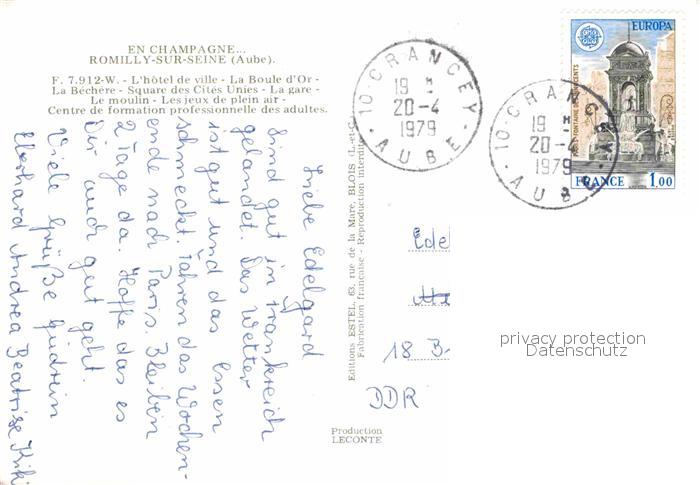 EN CHAMPAGNE...
ROMILLY-SUR-SEINE (Aube).
F. 7.912-W. - L'hôtel de ville - La Boule d'Or -
La Béchère - Square des Cités Unies - La gare -
Le moulin - Les jeux de plein air -
Centre de formation professionnelle des adultes.
Liebe Edelgard
Sind gut in Frankreich
gelandet. Das Wetter
ist gut und das Essen
schmeckt. Fahren das Wochen-
ende nach Paris. Bleiben
2 Tage da. Hoffe das es
Dir auch gut geht.
Viele Grüße Gudrein
Eberhard Andrea Beatrise Kiki
Editions ESTEL, 63, rue de la Mare, BLOIS (L.-et-C.
Fabrication française - Reproduction interdite
Production
LECONTE
10 · CRANCEY
19 H
20-4
1979
· AUBE ·
10 · CRANCEY
19 H
20-4
1979
· AUBE ·
EUROPA
PARIS-FONTAINE DES INNOCENTS
FRANCE 1,00
Edel
18 B
DDR
privacy protection
Datenschutz